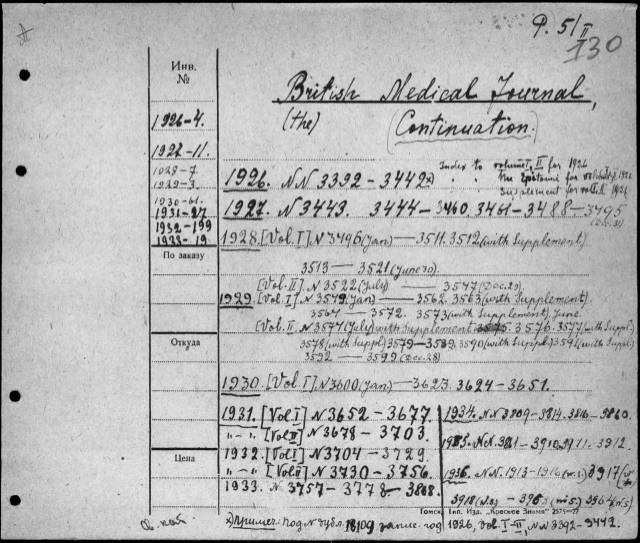 P. 5/II
130
Инв.
№
British Medical Journal,
(the) (Continuation.)
1926-4.
1927-11.
1928-7
1929-3.
1930-61.
1931-27
1932-199
1933-19.
Index to volume I, II for 1926
Supplement for vol. I, II 1926
1926. NN 3392-3442 x)
1927. N 3443. 3444-3460. 3461-3488-3495
(Dec. 31)
1928. [Vol. I] N 3496 (Jan)-3511. 3512 (with Supplement)
3513-3521 (June 30).
По заказу
[Vol. II] N 3522 (July)-3547 (Dec. 29)
1929. [Vol. I] N 3549 (Jan)-3562. 3563 (with Supplement).
3564-3572. 3573 (with Supplement) June.
[Vol. II. N 3574 (July) with Supplement 3575. 3576. 3577 (with Suppl.)
Откуда
3578 (with Suppl.) 3579-3589. 3590 (with Suppl.) 3591 (with Suppl.)
3592-3599 (Dec. 28)
1930. [Vol. I] N 3600 (Jan)-3623. 3624-3651.
1931. [Vol. I] N 3652-3677.
"-" [Vol. II] N 3678-3703.
1932. [Vol. I] N 3704-3729.
Цена
"-" [Vol. II] N 3730-3756.
1933. N 3757-3778-3808.
1934. N.N. 3809-3814. 3816-3860.
1935. N.N. 3861-3910. 3911. 3912.
1936. N.N. 3913-3916 3917
3918 3964
Томск, Тип. Изд. „Красное Знамя" 2575-77
x) Примеч. Под N дубл. 18109 запис. год 1926, Vol. I-II, NN 3392-3442.